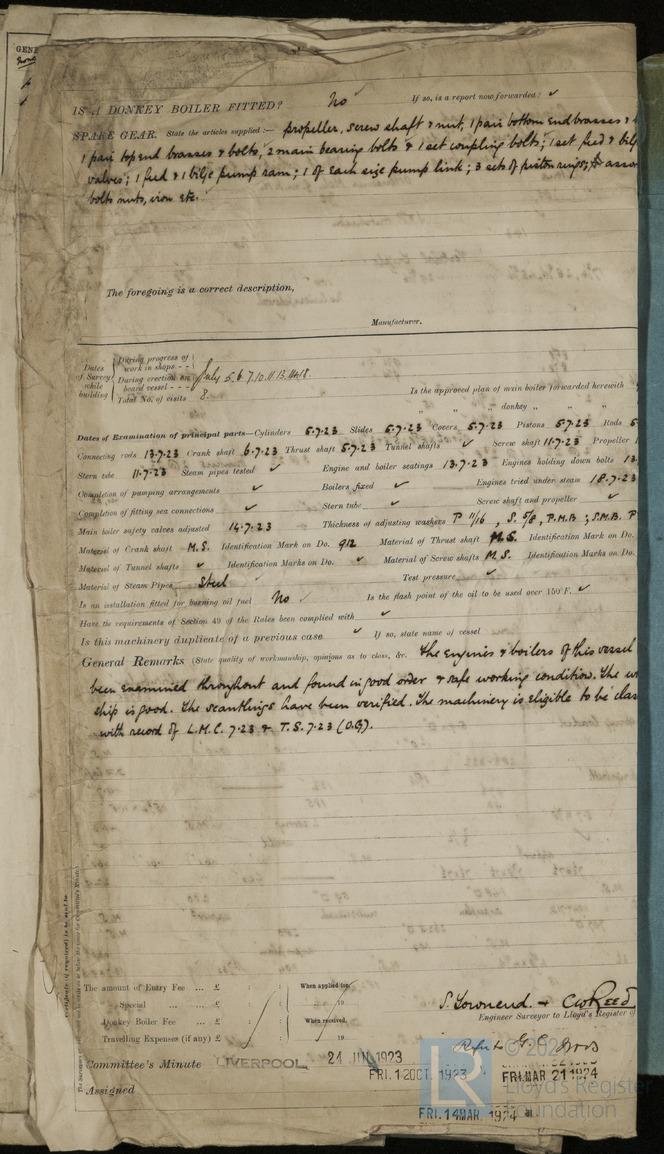 GENE
IS A DONKEY BOILER FITTED? No If so, is a report now forwarded? ✓
SPARE GEAR. State the articles supplied:— propeller, screw shaft & nut, 1 pair bottom end brasses &
1 pair top end brasses & bolts, 2 main bearing bolts & 1 set coupling bolts; 1 set feed & bilge
valves; 1 feed & 1 bilge pump ram; 1 of each size pump link; 3 sets of piston rings;
bolts nuts, iron etc.
The foregoing is a correct description,
Manufacturer.
Dates of Survey while building
During progress of work in shops - -
During erection on board vessel - - -
Total No. of visits 8.
July 5. 6 7. 10. 11. 13. 14. 18.
Is the approved plan of main boiler forwarded herewith
" " donkey " " "
Dates of Examination of principal parts—Cylinders 5.7.23 Slides 5.7.23 Covers 5.7.23 Pistons 5.7.23 Rods 5
Connecting rods 13.7.23 Crank shaft 6.7.23 Thrust shaft 5.7.23 Tunnel shafts ✓ Screw shaft 11.7.23 Propeller
Stern tube 11.7.23 Steam pipes tested ✓ Engine and boiler seatings 13.7.23 Engines holding down bolts 13
Completion of pumping arrangements ✓ Boilers fixed ✓ Engines tried under steam 18.7.23
Completion of fitting sea connections ✓ Stern tube ✓ Screw shaft and propeller ✓
Main boiler safety valves adjusted 14.7.23 Thickness of adjusting washers P 11/16, S. 5/8, P.M.B ; S.M.B. P
Material of Crank shaft M.S. Identification Mark on Do. 912 Material of Thrust shaft M.S. Identification Mark on Do.
Material of Tunnel shafts ✓ Identification Marks on Do. ✓ Material of Screw shafts M.S. Identification Marks on Do.
Material of Steam Pipes Steel ✓ Test pressure ✓
Is an installation fitted for burning oil fuel No ✓ Is the flash point of the oil to be used over 150°F. ✓
Have the requirements of Section 49 of the Rules been complied with ✓
Is this machinery duplicate of a previous case ✓ If so, state name of vessel
General Remarks (State quality of workmanship, opinions as to class, &c. The engines & boilers of this vessel
been examined throughout and found in good order & safe working condition. The
ship is good. The scantlings have been verified. The machinery is eligible to be
with record of L.M.C. 7.23 & T.S. 7.23 (O.G).
The amount of Entry Fee ... £ : : When applied for,
Special ... ... £ : : 19
Donkey Boiler Fee ... £ : : When received,
Travelling Expenses (if any) £ : : 19
S. Townend. + CW Reed
Engineer Surveyor to Lloyd's Register of
Committee's Minute LIVERPOOL 24 JUL 1923
FRI. 12 OCT. 1923 FRI. MAR 21 1924
Assigned
FRI. 14 MAR. 1924
LR
Lloyd's Register
Foundation